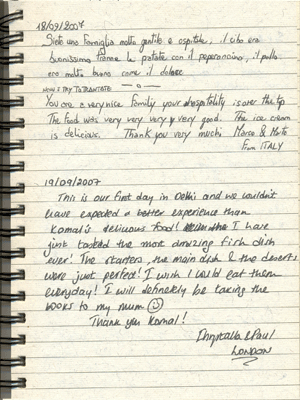 18/09/2007
Siete una famiglia molto gentile e ospitale; il cibo era
buonissimo tranne le patate con il peperoncino, il pollo
era molto buono come il dolce
NOW I TRY TO TRANSLATE
You are a very nice family your hospitality is over the top
The food was very very very very good. The ice cream
is delicious. Thank you very much! Marco & Marta
From ITALY
19/09/2007
This is our first day in Delhi and we wouldn't
have expected a better experience than
Komal's delicious food! I have
just tasted the most amazing fish dish
ever! The starters, the main dish & the deserts
were just perfect! I wish I could eat them
everyday! I will definetely be taking the
books to my mum
Thank you Komal!
& Paul
LONDON